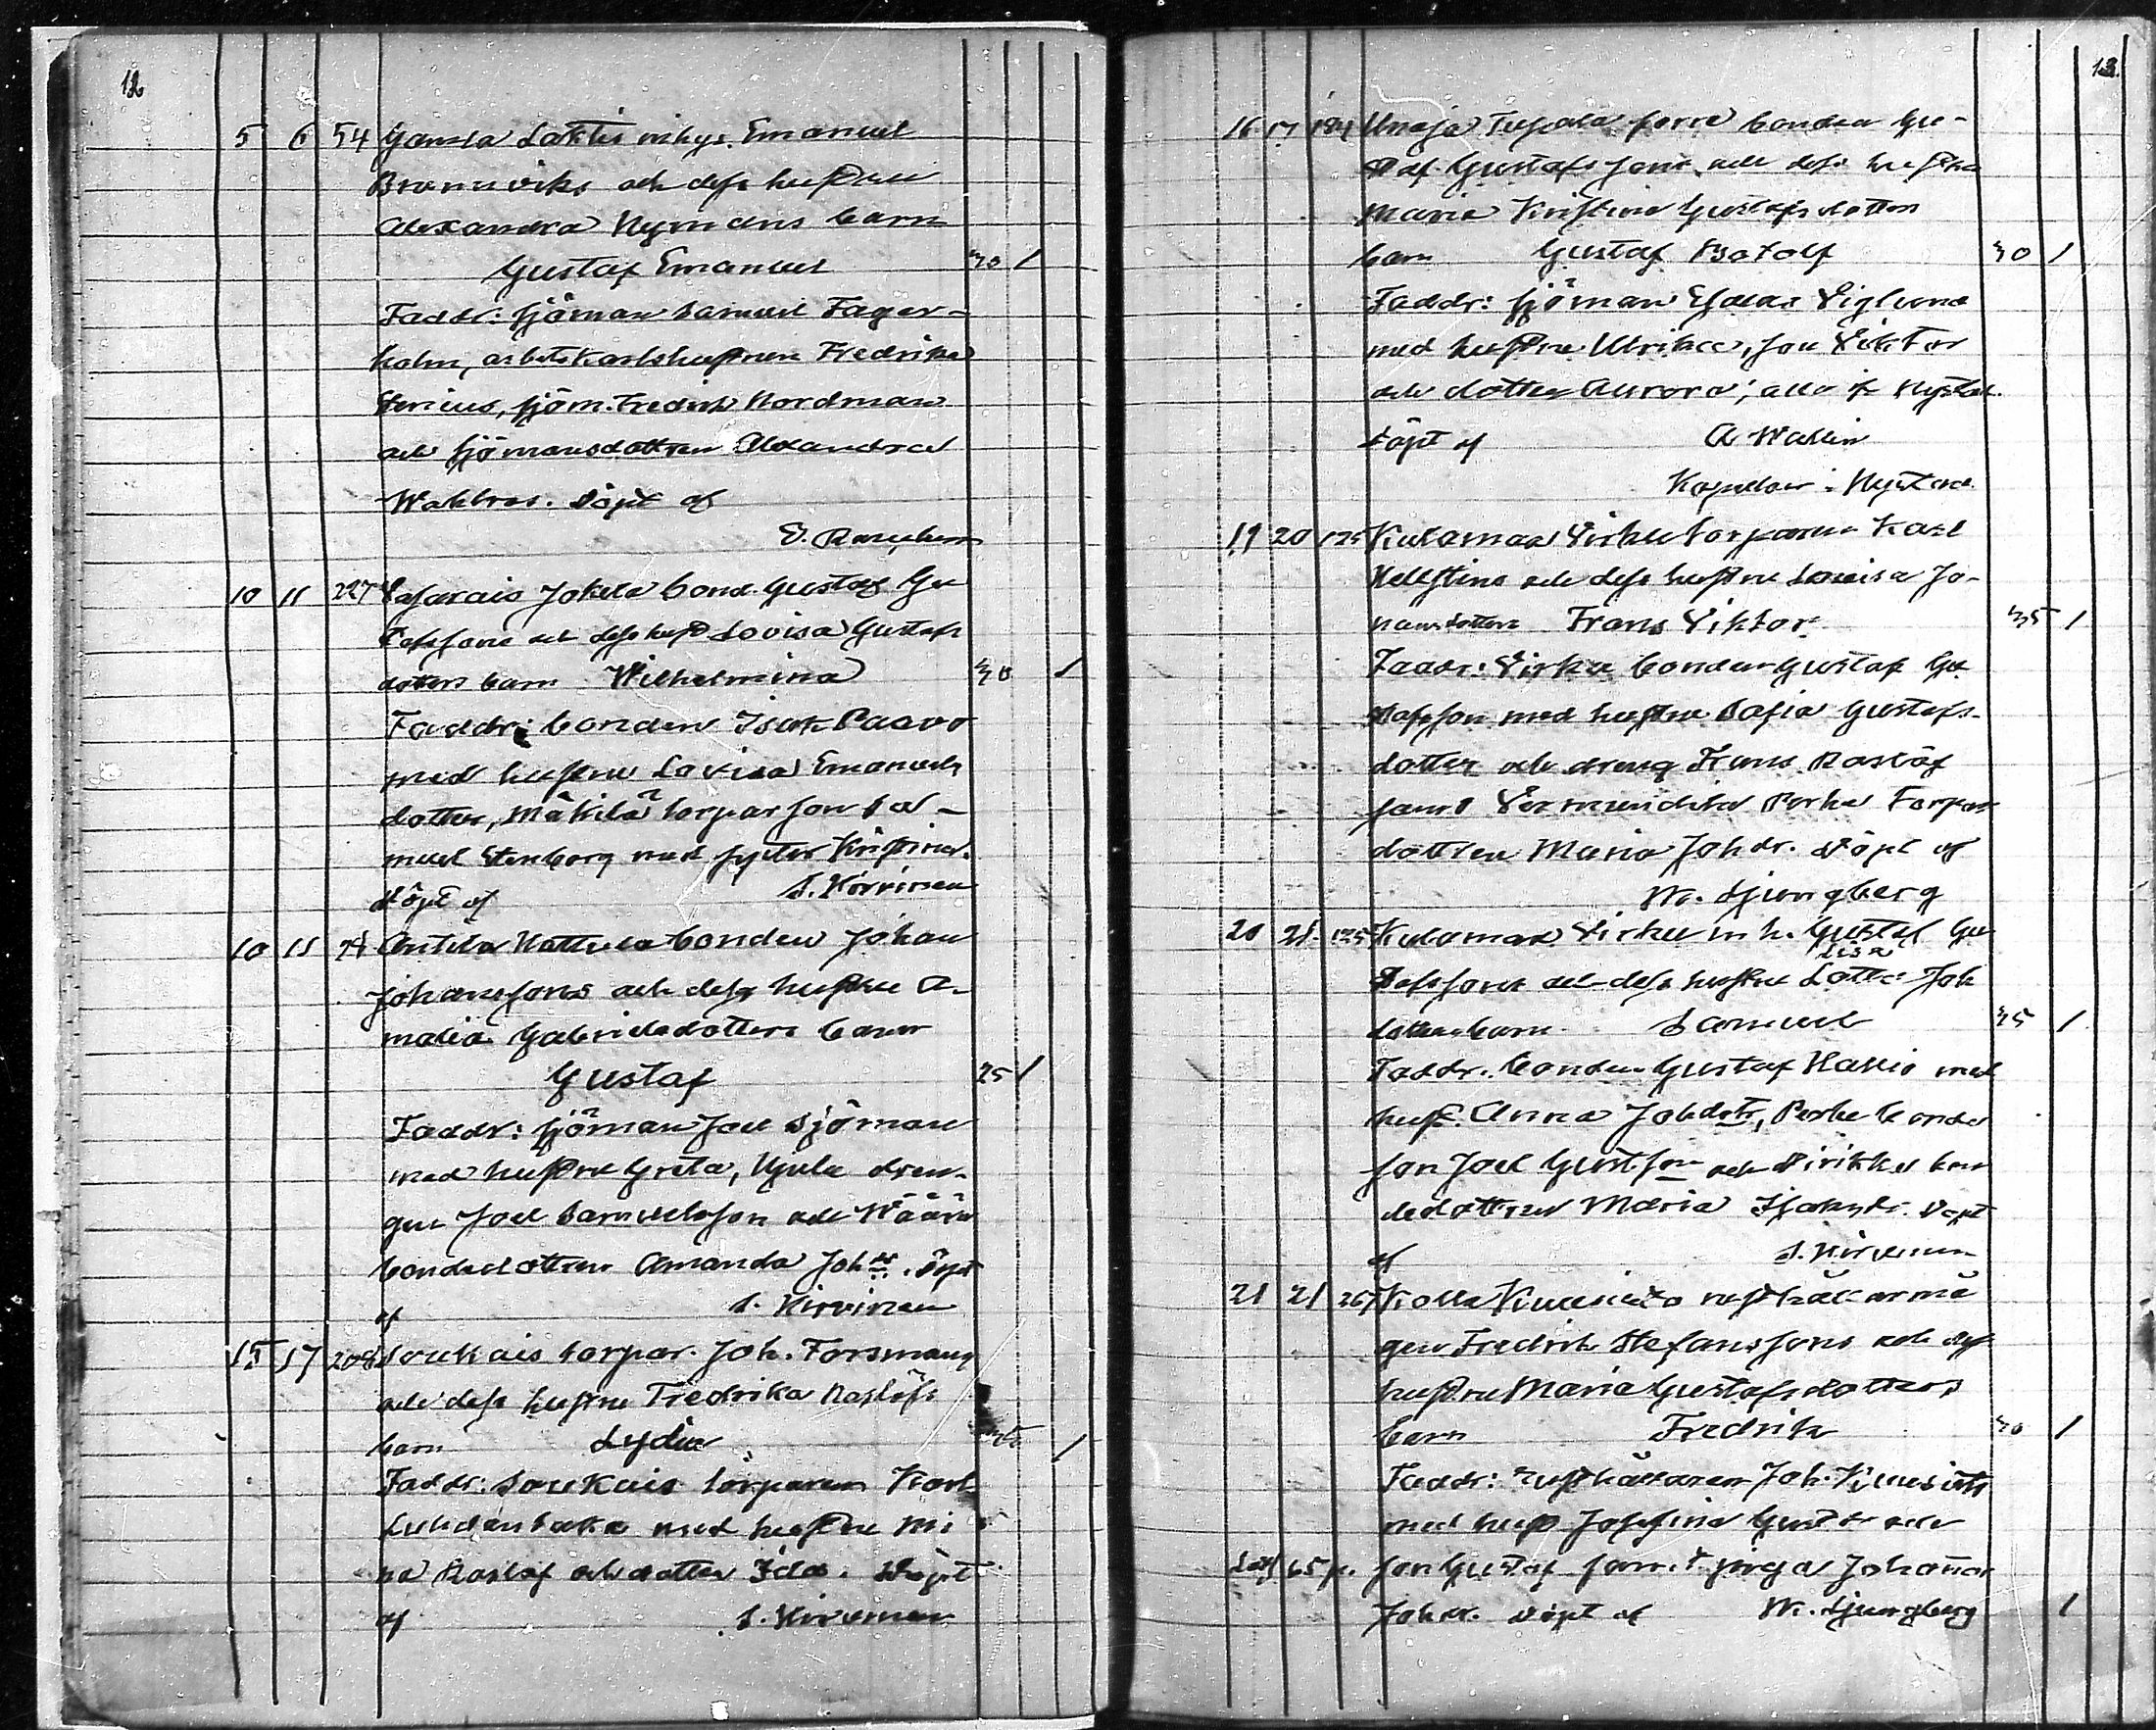 12
5 6 54 Gamla Laktis inhys. Emanuel
Brannviks och dess hustru
Alexandra Nymans barn
Gustaf Emanuel 30 1
Faddr: sjöman Samuel Fager-
holm, arbetskarlshustrun Fredrika
sjöm. Fredrik Nordman
och sjömansdottren Alexandra
Wahlroos. Döpt af
E.
10 11 227 Jokela bond. Gustaf Gu
stafssons och dess hust Lovisa Gustafs
dotters barn Wilhelmina 30 1
Faddr: bonden Isak Paavo
med hustru Lovisa Emanuels
dotter, Mäkilä torparson Sa-
muel Stenborg med syster Kristina.
Döpt af S. Kirvinen
10 11 74 Anttila Nattula bonden Johan
Johanssons och dess hustru A-
malia Gabrielsdotters barn
Gustaf 25 1
Faddr: sjöman Joel Sjöman
med hustru Greta, dren-
gen Joel Samuelsson och Wäärä
bondedottren Amanda Joh dr. Döpt
af S. Kirvinen
15 17 208 Soukais torpar. Joh. Forsmans
och dess hustru Fredrika Roslöfs
barn Lydia 1
Faddr: Soukais torparen Karl
med hustru Mi
na Roslöf och dotter Ida. Döpt
af S. Kirvinen
13.
16 17 184 Unaja förre bonden Gu-
staf Gustafssons och dess hustru
Maria Kristina Gustafsdotters
barn Gustaf Botolf 30 1
Faddr: sjöman Esaias Viglund
med hustru Ulrika, son Viktor
och dotter Aurora; alla fr Nystad.
Döpt af A Wallin
Kapellan i Nystad
19 20 125 Kulamaa Virku torparen Karl
Hellstens och dess hustru Lovisa Jo-
hansdotters Frans Viktor 35 1
Faddr: Virku bonden Gustaf Gu
stafsson med hustru Sofia Gustafs-
dotter och dreng Frans Roslöf
samt Perhe torpar
dottren Maria Joh dr. Döpt af
W. Ljungberg
20 21 125 Kulamaa Virku inh. Gustaf Gu
Lisa
stafssons och dess hustru Lotta Joh
dotters barn Samuel 25 1
Faddr. bonden Gustaf Kallio med
hust. Anna Johdotr, Perhe bonde
son Joel Gustson och Pirikko bon
dedottren Maria Isaksdr. Döpt
af S. Kirvinen
21 21 267 Kolla Kuusisto rusthållarmå
gen Fredrik Stefanssons och dess
hustru Maria Gustafsdotters
barn Fredrik 30 1
Faddr: rusthållaren Joh. Kuusisto
med hust Josefina Gust dr och
65 p. son Gustaf samt piga Johanna
Joh dr. Döpt af W. Ljungberg 1